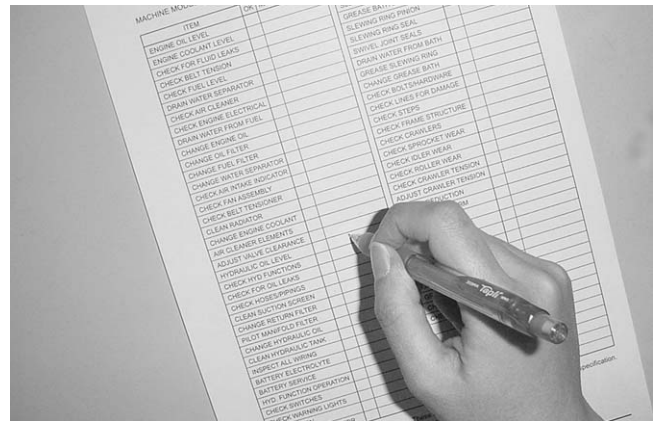 MACHINE MODEL
ITEM
OK
ENGINE OIL LEVEL
ENGINE COOLANT LEVEL
CHECK FOR FLUID LEAKS
CHECK BELT TENSION
CHECK FUEL LEVEL
DRAIN WATER SEPARATOR
CHECK AIR CLEANER
CHECK ENGINE ELECTRICAL
DRAIN WATER FROM FUEL
CHANGE ENGINE OIL
CHANGE OIL FILTER
CHANGE FUEL FILTER
CHANGE WATER SEPARATOR
CHECK AIR INTAKE INDICATOR
CHECK FAN ASSEMBLY
CHECK BELT TENSIONER
CLEAN RADIATOR
CHANGE ENGINE COOLANT
AIR CLEANER ELEMENTS
ADJUST VALVE CLEARANCE
HYDRAULIC OIL LEVEL
CHECK HYD FUNCTIONS
CHECK FOR OIL LEAKS
CHECK HOSES/PIPINGS
CLEAN SUCTION SCREEN
CHANGE RETURN FILTER
PILOT MANIFOLD FILTER
CHANGE HYDRAULIC OIL
CLEAN HYDRAULIC TANK
INSPECT ALL WIRING
BATTERY ELECTROLYTE
BATTERY SERVICE
HYD. FUNCTION OPERATION
CHECK SWITCHES
CHECK WARNING LIGHTS
GREASE BATH
SLEWING RING PINION
SLEWING RING SEAL
SWIVEL JOINT SEALS
DRAIN WATER FROM BATH
GREASE SLEWING RING
CHANGE GREASE BATH
CHECK BOLTS/HARDWARE
CHECK LINES FOR DAMAGE
CHECK STEPS
CHECK FRAME STRUCTURE
CHECK CRAWLERS
CHECK SPROCKET WEAR
CHECK IDLER WEAR
CHECK ROLLER WEAR
CHECK CRAWLER TENSION
ADJUST CRAWLER TENSION
REDUCTION
specification.